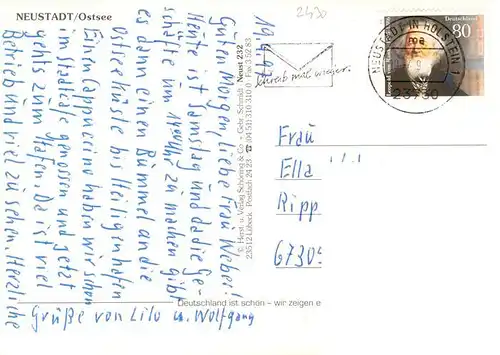 NEUSTADT/Ostsee
2430
19.4.97
Guten Morgen, liebe Frau Weber!
Heute ist Samstag und da die Ge-
schäfte um 14 Uhr zu machen gibt
es dann einen Bummel an die
Ostseeküste bis Heiligenhafen
Einen Cappuccino haben wir schon
im Stadtcafe genossen und jetzt
gehts zum Hafen. Da ist viel
Betrieb und viel zu sehen. Herzliche
Grüße von Lilo u. Wolfgang
© Herst. u. Verlag Schöning & Co. · Gebr. Schmidt · Neust 232
23512 Lübeck Postfach 24 23 ☎ (04 51) 310 310 0 · Fax 3 52 83
Deutschland ist schön – wir zeigen e
Schreib mal wieder.
NEUSTADT IN HOLSTEIN 1
ma
23730
Deutschland
80
Frau
Ella
Ripp
6730